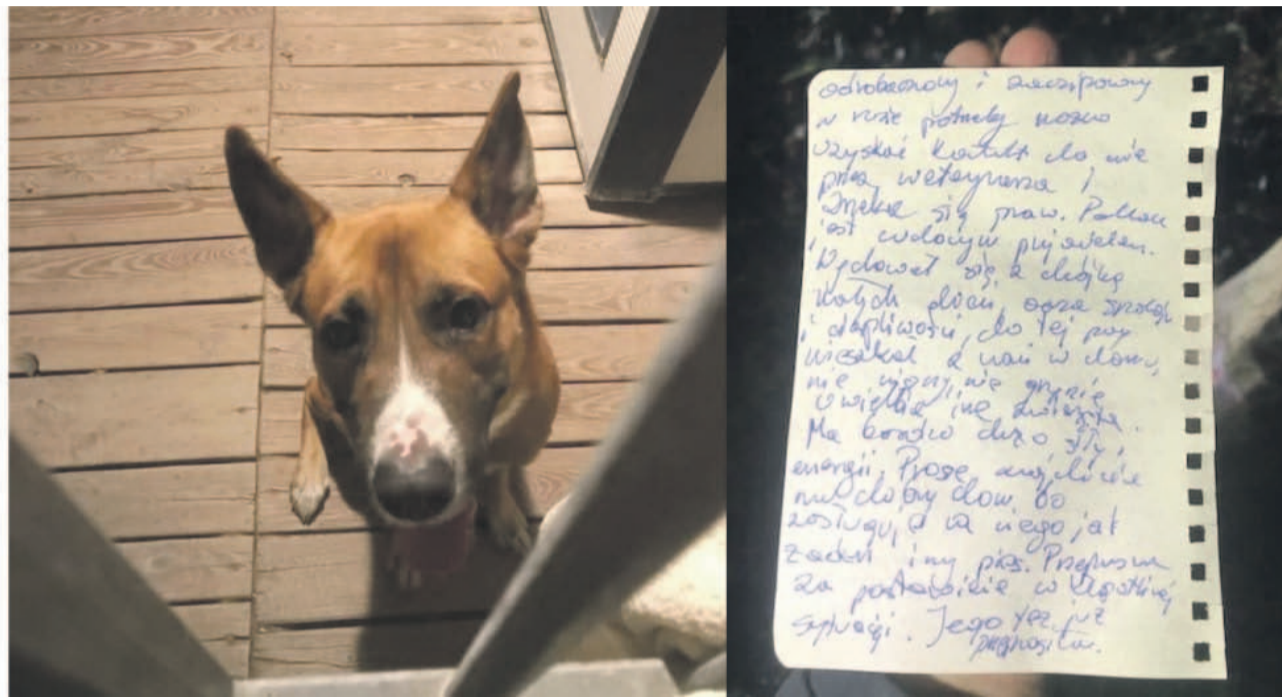 odrobaczony i zaczipowany
w razie potrzeby można
uzyskać kontakt do mnie
przez weterynarza i
się praw.
jest cudownym przyjacielem.
Wychował się z dwójką
małych dzieci, oaza spokoju
i cierpliwości, do tej pory
mieszkał z nami w domu,
nie niszczy, nie gryzie
uwielbia inne zwierzęta.
Ma bardzo dużo siły,
energii. Proszę znajdźcie
mu dobry dom bo
zasługuje na niego jak
żaden inny pies. Przepraszam
za postawienie w kłopotliwej
sytuacji. Jego też już
przeprosiłam.